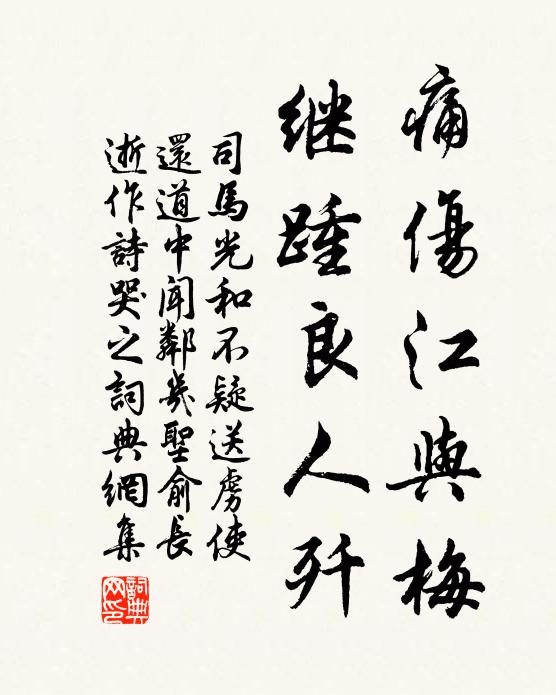 痛傷江與梅
继踵良人歼
司馬光和不疑送虜使
還道中闻鄰幾聖俞長
逝作詩哭之詞典網集
詞典網印